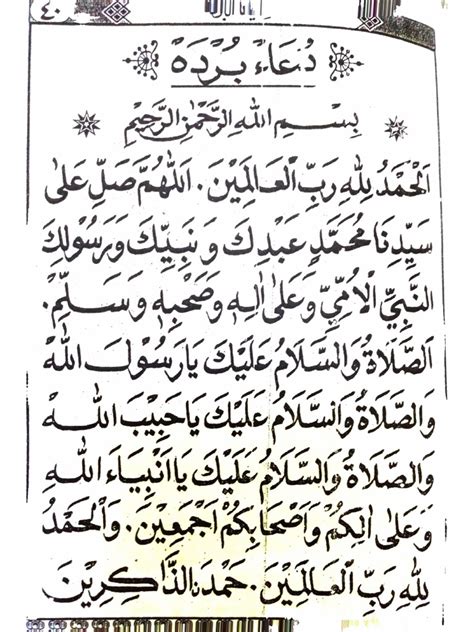 ٤٠
دُعَاءْ بُرْدَهْ
بِسْمِ اللهِ الرَّحْمٰنِ الرَّحِيْمِ
اَلْحَمْدُ لِلّٰهِ رَبِّ الْعَالَمِيْنَ. اَللّٰهُمَّ صَلِّ عَلٰى
سَيِّدِنَا مُحَمَّدٍ عَبْدِكَ وَنَبِيِّكَ وَرَسُوْلِكَ
النَّبِيِّ الْاُمِّيِّ وَعَلٰى اٰلِهٖ وَصَحْبِهٖ وَسَلِّمْ.
اَلصَّلَاةُ وَالسَّلَامُ عَلَيْكَ يَارَسُوْلَ اللهْ
وَالصَّلَاةُ وَالسَّلَامُ عَلَيْكَ يَاحَبِيْبَ اللهْ
وَالصَّلَاةُ وَالسَّلَامُ عَلَيْكَ يَااَنْبِيَاءَ اللهْ
وَعَلٰى اٰلِكُمْ وَاَصْحَابِكُمْ اَجْمَعِيْنَ. وَالْحَمْدُ
لِلّٰهِ رَبِّ الْعَالَمِيْنَ. حَمْدَ الذَّاكِرِيْنَ